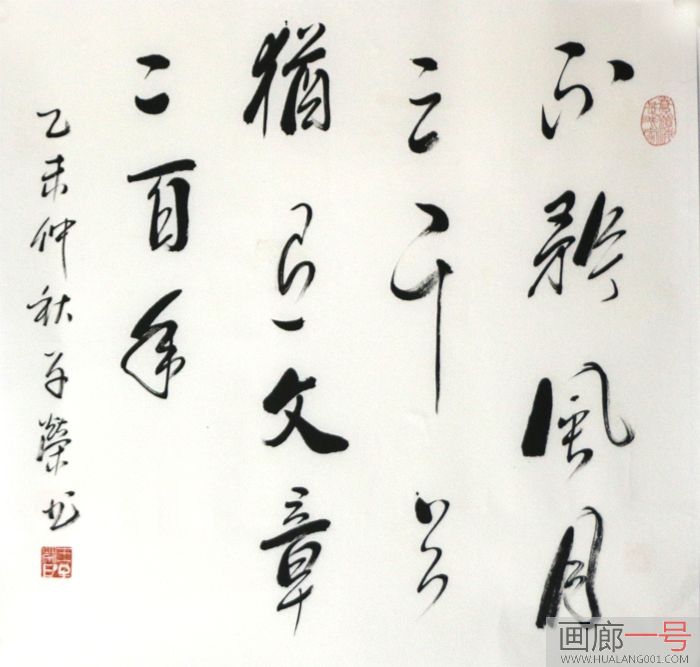 不矜風月
三千首
猶文章
二百年
乙未仲秋子榮书
画廊一号
WWW.HUALANG001.COM